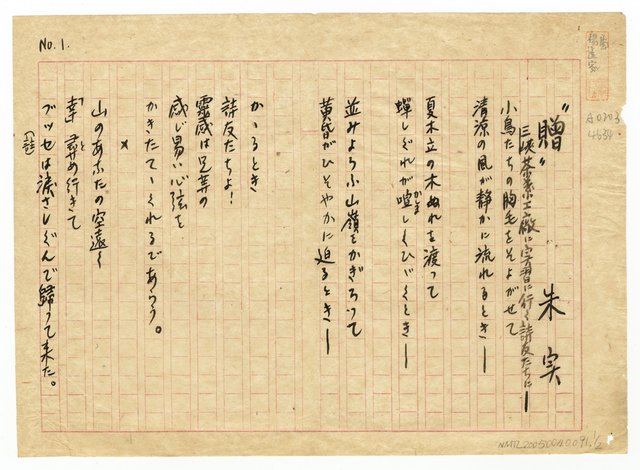 No. 1.
"贈" 朱実
三峡茶業工廠に実習に行く詩友たちに—
小鳥たちの胸毛をそよがせて
清涼の風が静かに流れるとき—
夏木立の木ぬれを渡って
蟬しぐれが喧しくひびくとき—
かま
並みよろふ山嶺をかぎろって
黄昏がひそやかに迫るとき—
かゝるとき
詩友たちよ!
靈感は兄等の
感じ易い心弦を
かきたてゝくれるであらう。
×
山のあなたの空遠く
「幸」尋め行きて
と
ブッセは涙さしぐんで歸って来た。
(註)
A0303
4634
NMTL20050040091.1/2